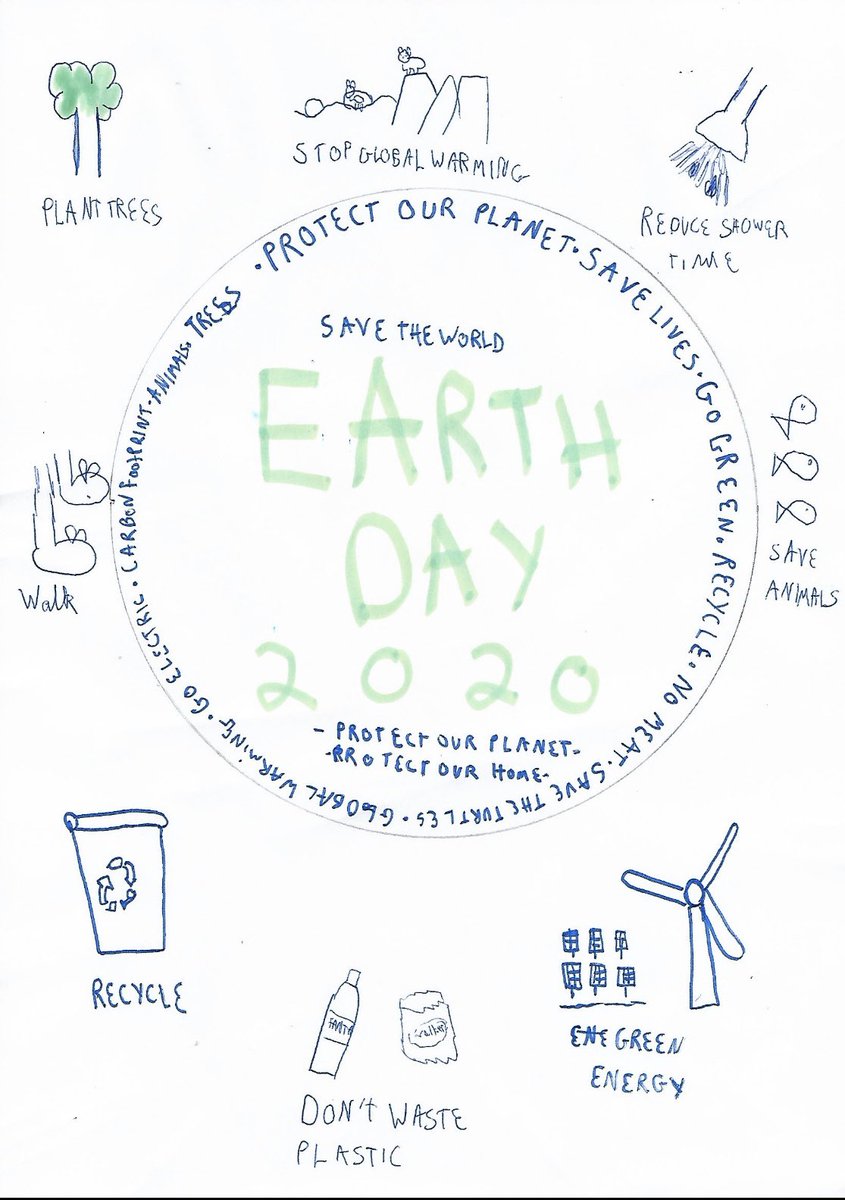 PLANT TREES
STOP GLOBAL WARMING
REDUCE SHOWER
TIME
• PROTECT OUR PLANET • SAVE LIVES • GO GREEN • RECYCLE • NO MEAT • SAVE THE TURTLES • GLOBAL WARMING • GO ELECTRIC • CARBON FOOTPRINT • ANIMALS • TREES
SAVE THE WORLD
EARTH
DAY
2020
- PROTECT OUR PLANET -
- PROTECT OUR HOME -
Walk
SAVE
ANIMALS
RECYCLE
FANTA
Walkers
DON'T WASTE
PLASTIC
GREEN
ENERGY